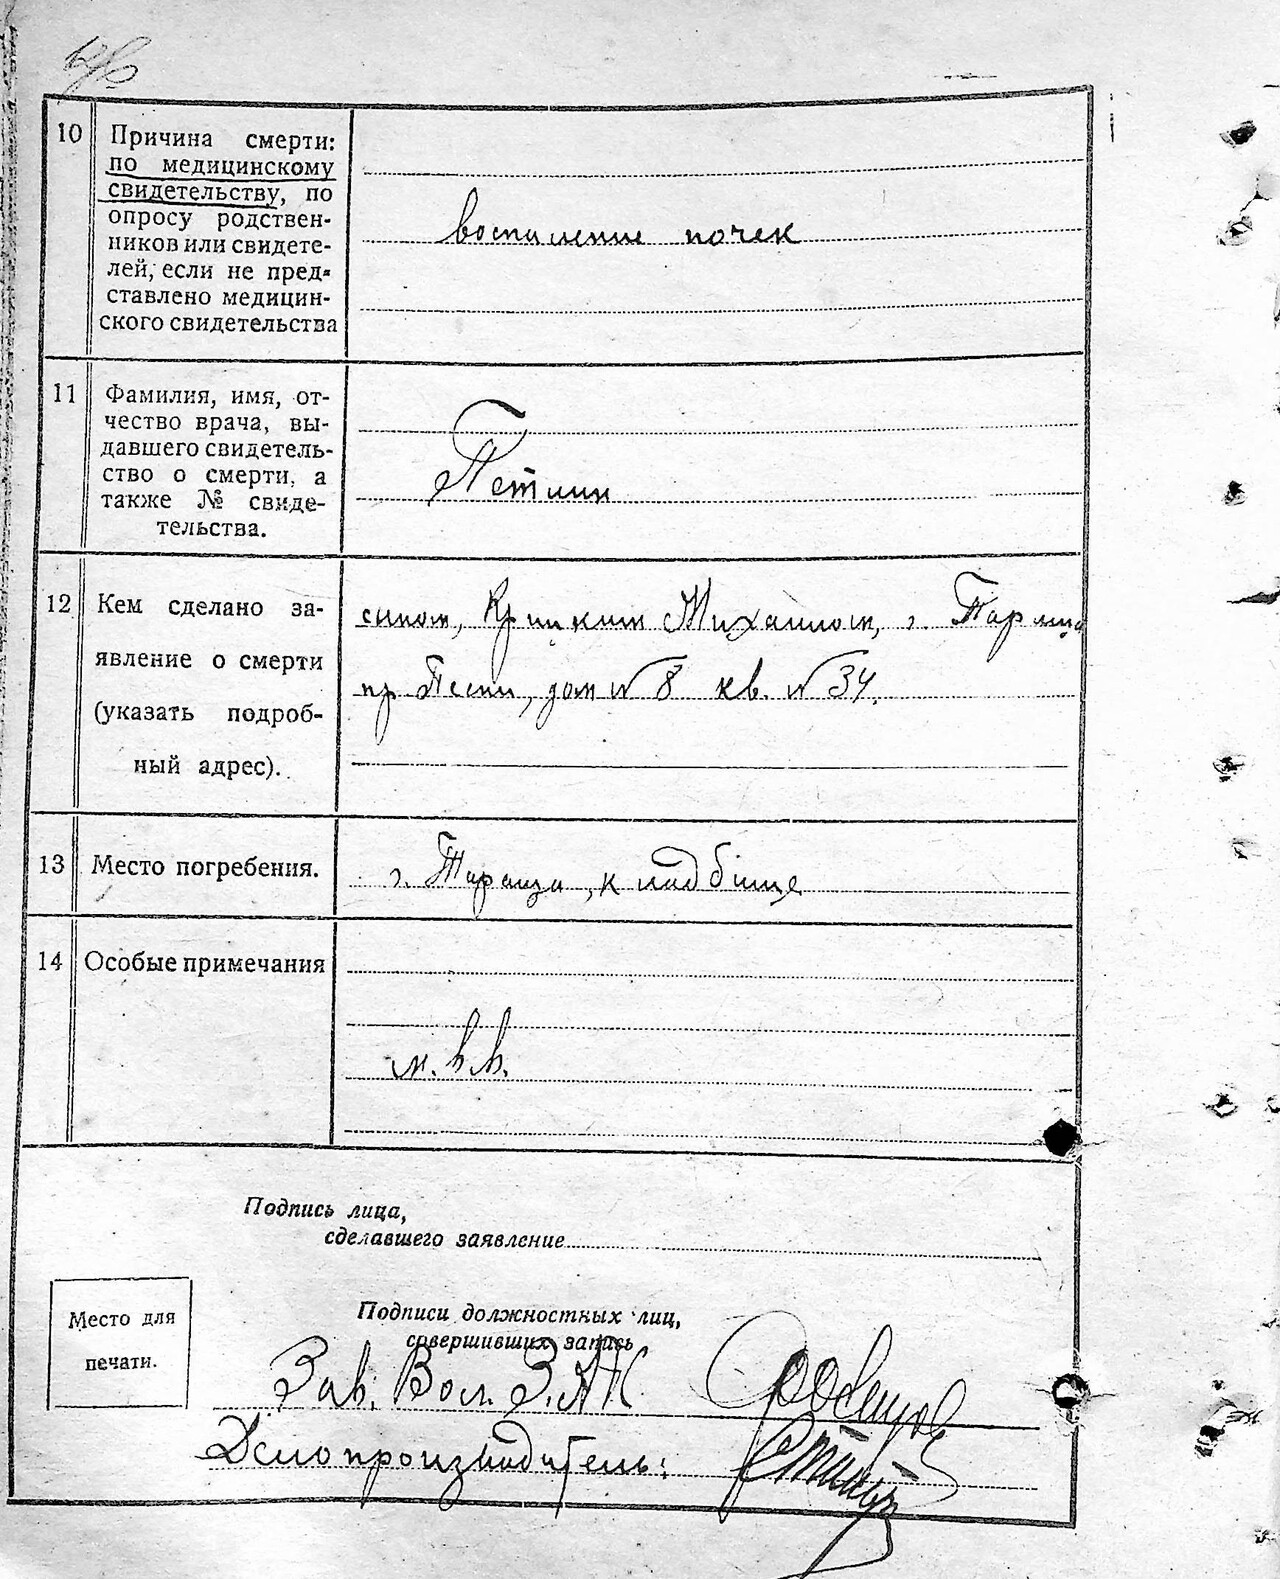 10 Причина смерти:
по медицинскому
свидетельству, по
опросу родствен-
ников или свидете-
лей, если не пред-
ставлено медицин-
ского свидетельства
воспаление почек
11 Фамилия, имя, от-
чество врача, вы-
давшего свидетель-
ство о смерти, а
также № свиде-
тельства.
Петлин
12 Кем сделано за-
явление о смерти
(указать подроб-
ный адрес).
сыном, Михаилом, г. Тараща
пр. дом № 8 кв. № 34.
13 Место погребения.
г. Тараща, кладбище
14 Особые примечания
Подпись лица,
сделавшего заявление
Место для
печати.
Подписи должностных лиц,
совершивших запись
Зав. Вол. ЗАГС
Делопроизводитель: